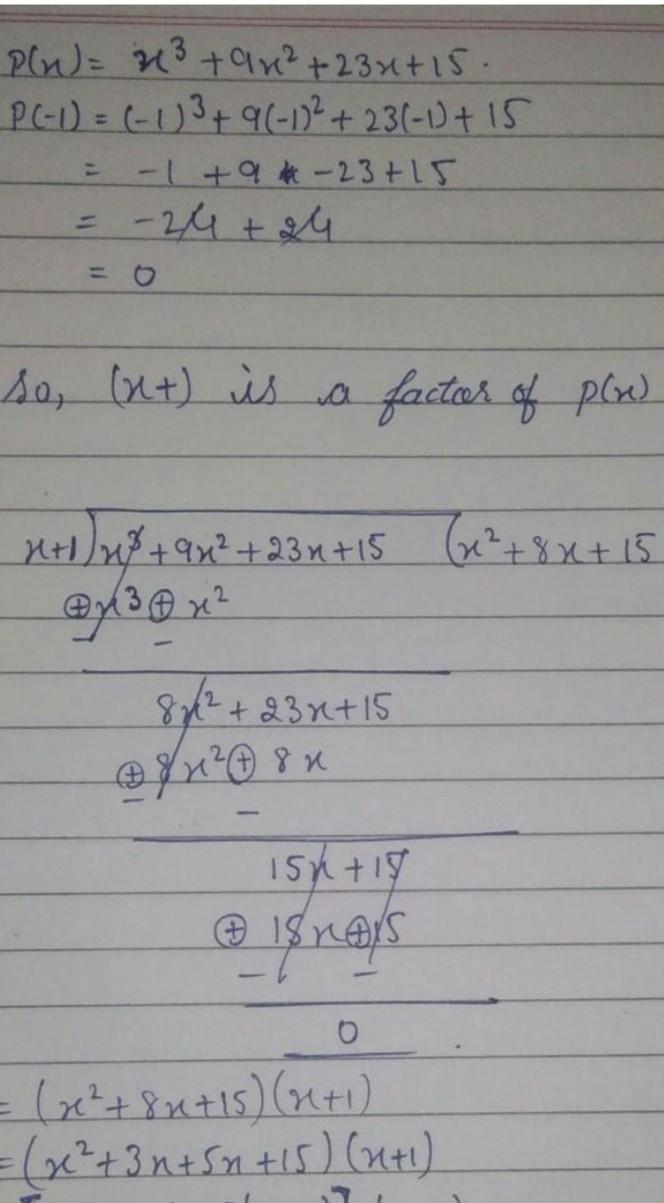 p(x) = x³ + 9x² + 23x + 15 .
P(-1) = (-1)³ + 9(-1)² + 23(-1) + 15
= -1 + 9 -23 + 15
= -24 + 24
= 0
So, (x+) is a factor of p(x)
x+1)x³ + 9x² + 23x + 15 (x² + 8x + 15
⊕x³ ⊕ x²
− −
8x² + 23x + 15
⊕ 8x² ⊕ 8x
− −
15x + 15
⊕ 15x ⊕ 15
− −
0 .
= (x² + 8x + 15) (x+1)
= (x² + 3x + 5x + 15) (x+1)